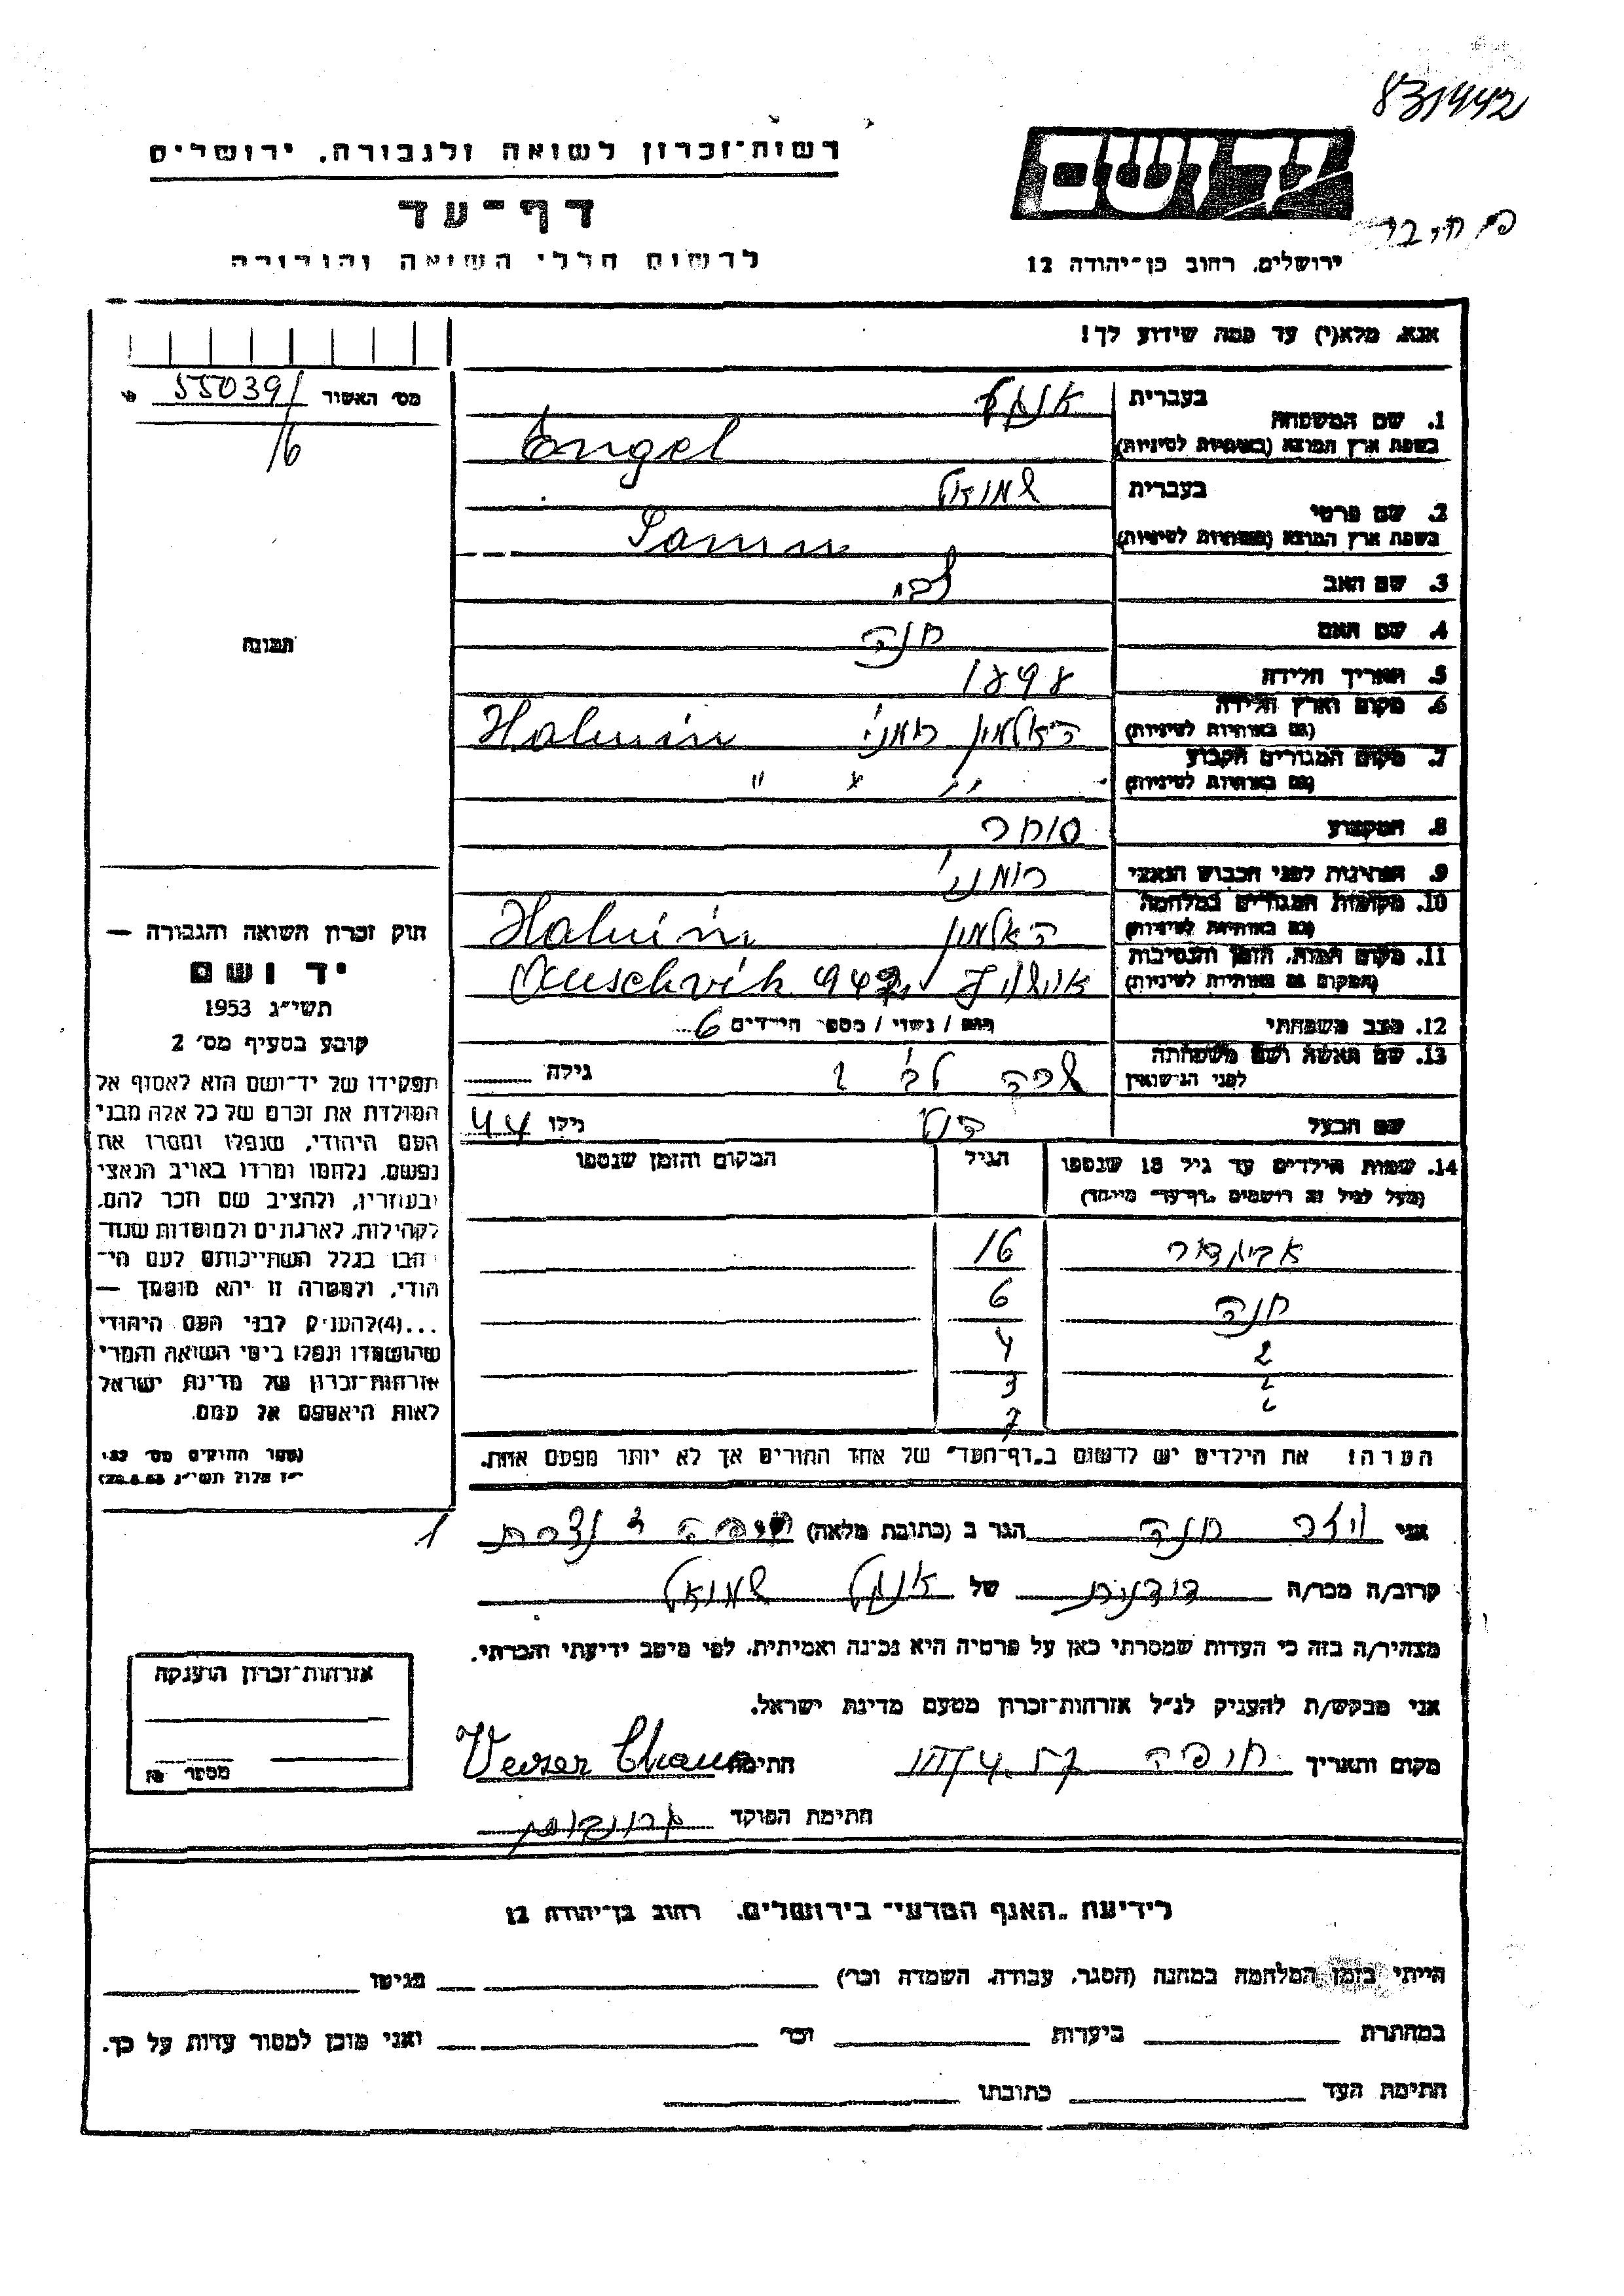 831442
רשות־זכרון לשואה ולגבורה, ירושלים
יד ושם
דף־עד
לרשום חללי השואה והגבורה
ירושלים, רחוב בן־יהודה 12
אנא, מלא(י) עד כמה שידוע לך!
מס' האשור 55039/
16
1. שם המשפחה
בעברית אנגל
בשפת ארץ המוצא (באותיות לטיניות) Engel
2. שם פרטי
בעברית שמואל
בשפת ארץ המוצא (באותיות לטיניות)
3. שם האב לבי
4. שם האם חנה
תמונה
5. תאריך הלידה 1898
6. מקום וארץ הלידה
(גם באותיות לטיניות) האלמין רומני' Halmin
7. מקום המגורים הקבוע
(גם באותיות לטיניות) " " "
8. המקצוע סוחר
9. הנתינות לפני הכבוש הנאצי רומני'
10. מקומות המגורים במלחמה
(גם באותיות לטיניות) האלמין Halmin
11. מקום המות, הזמן והנסיבות
(המקום גם באותיות לטיניות) Auschvih
12. מצב משפחתי רווק / נשוי / מספר הילדים 6
13. שם האשה ושם משפחתה
לפני הנישואין שרה גילה
שם הבעל גילו 44
14. שמות הילדים עד גיל 18 שנספו הגיל המקום והזמן שנספו
(מעל לגיל זה רושמים "דף־עד" מיוחד)
אביגדור 16
חנה 6
? 4
3
הערה! את הילדים יש לרשום ב"דף־העד" של אחד ההורים אך לא יותר מפעם אחת.
חוק זכרון השואה והגבורה —
יד ושם
תשי"ג 1953
קובע בסעיף מס' 2
תפקידו של יד־ושם הוא לאסוף אל
המולדת את זכרם של כל אלה מבני
העם היהודי, שנפלו ומסרו את
נפשם, נלחמו ומרדו באויב הנאצי
ובעוזריו, ולהציב שם וזכר להם,
לקהילות, לארגונים ולמוסדות שנח־
רבו בגלל השתייכותם לעם הי־
הודי, ולמטרה זו יהא מוסמך —
...(4) להעניק לבני העם היהודי
שהושמדו ונפלו בימי השואה והמרי
אזרחות־זכרון של מדינת ישראל
לאות היאספם אל עמם.
(ספר החוקים מס' 132,
י"ז אלול תשי"ג 28.8.53)
אני ויזר חנה הגר ב (כתובת מלאה) חיפה
קרוב/ה מכר/ה בת דודה של אנגל שמואל
מצהיר/ה בזה כי העדות שמסרתי כאן על פרטיה היא נכונה ואמיתית, לפי מיטב ידיעתי והכרתי.
אני מבקש/ת להעניק לנ"ל אזרחות־זכרון מטעם מדינת ישראל.
מקום ותאריך חיפה חתימה Veiser Chana
חתימת הפוקד
אזרחות־זכרון הוענקה
מספר
לידיעת "האגף המדעי" בירושלים, רחוב בן־יהודה 12
הייתי בזמן המלחמה במחנה (הסגר, עבודה, השמדה וכר') בגיטו
במחתרת ביערות וכר' ואני מוכן למסור עדות על כך.
חתימת העד כתובתו